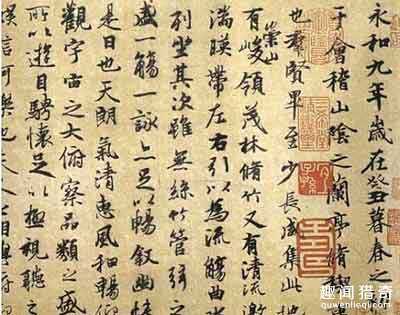 永和九年歲在癸丑暮春之
于會稽山陰之蘭亭脩禊
也羣賢畢至少長咸集此地
有崇山峻領茂林脩竹又有清流激
湍暎帶左右引以為流觴曲水
列坐其次雖無絲竹管弦之
盛一觴一詠亦足以暢敘幽情
是日也天朗氣清惠風和暢仰
觀宇宙之大俯察品類之盛
所以遊目騁懷足以極視聽之
娛信可樂也夫人之相與俯
趣闻猎奇
quwenlieqi.com